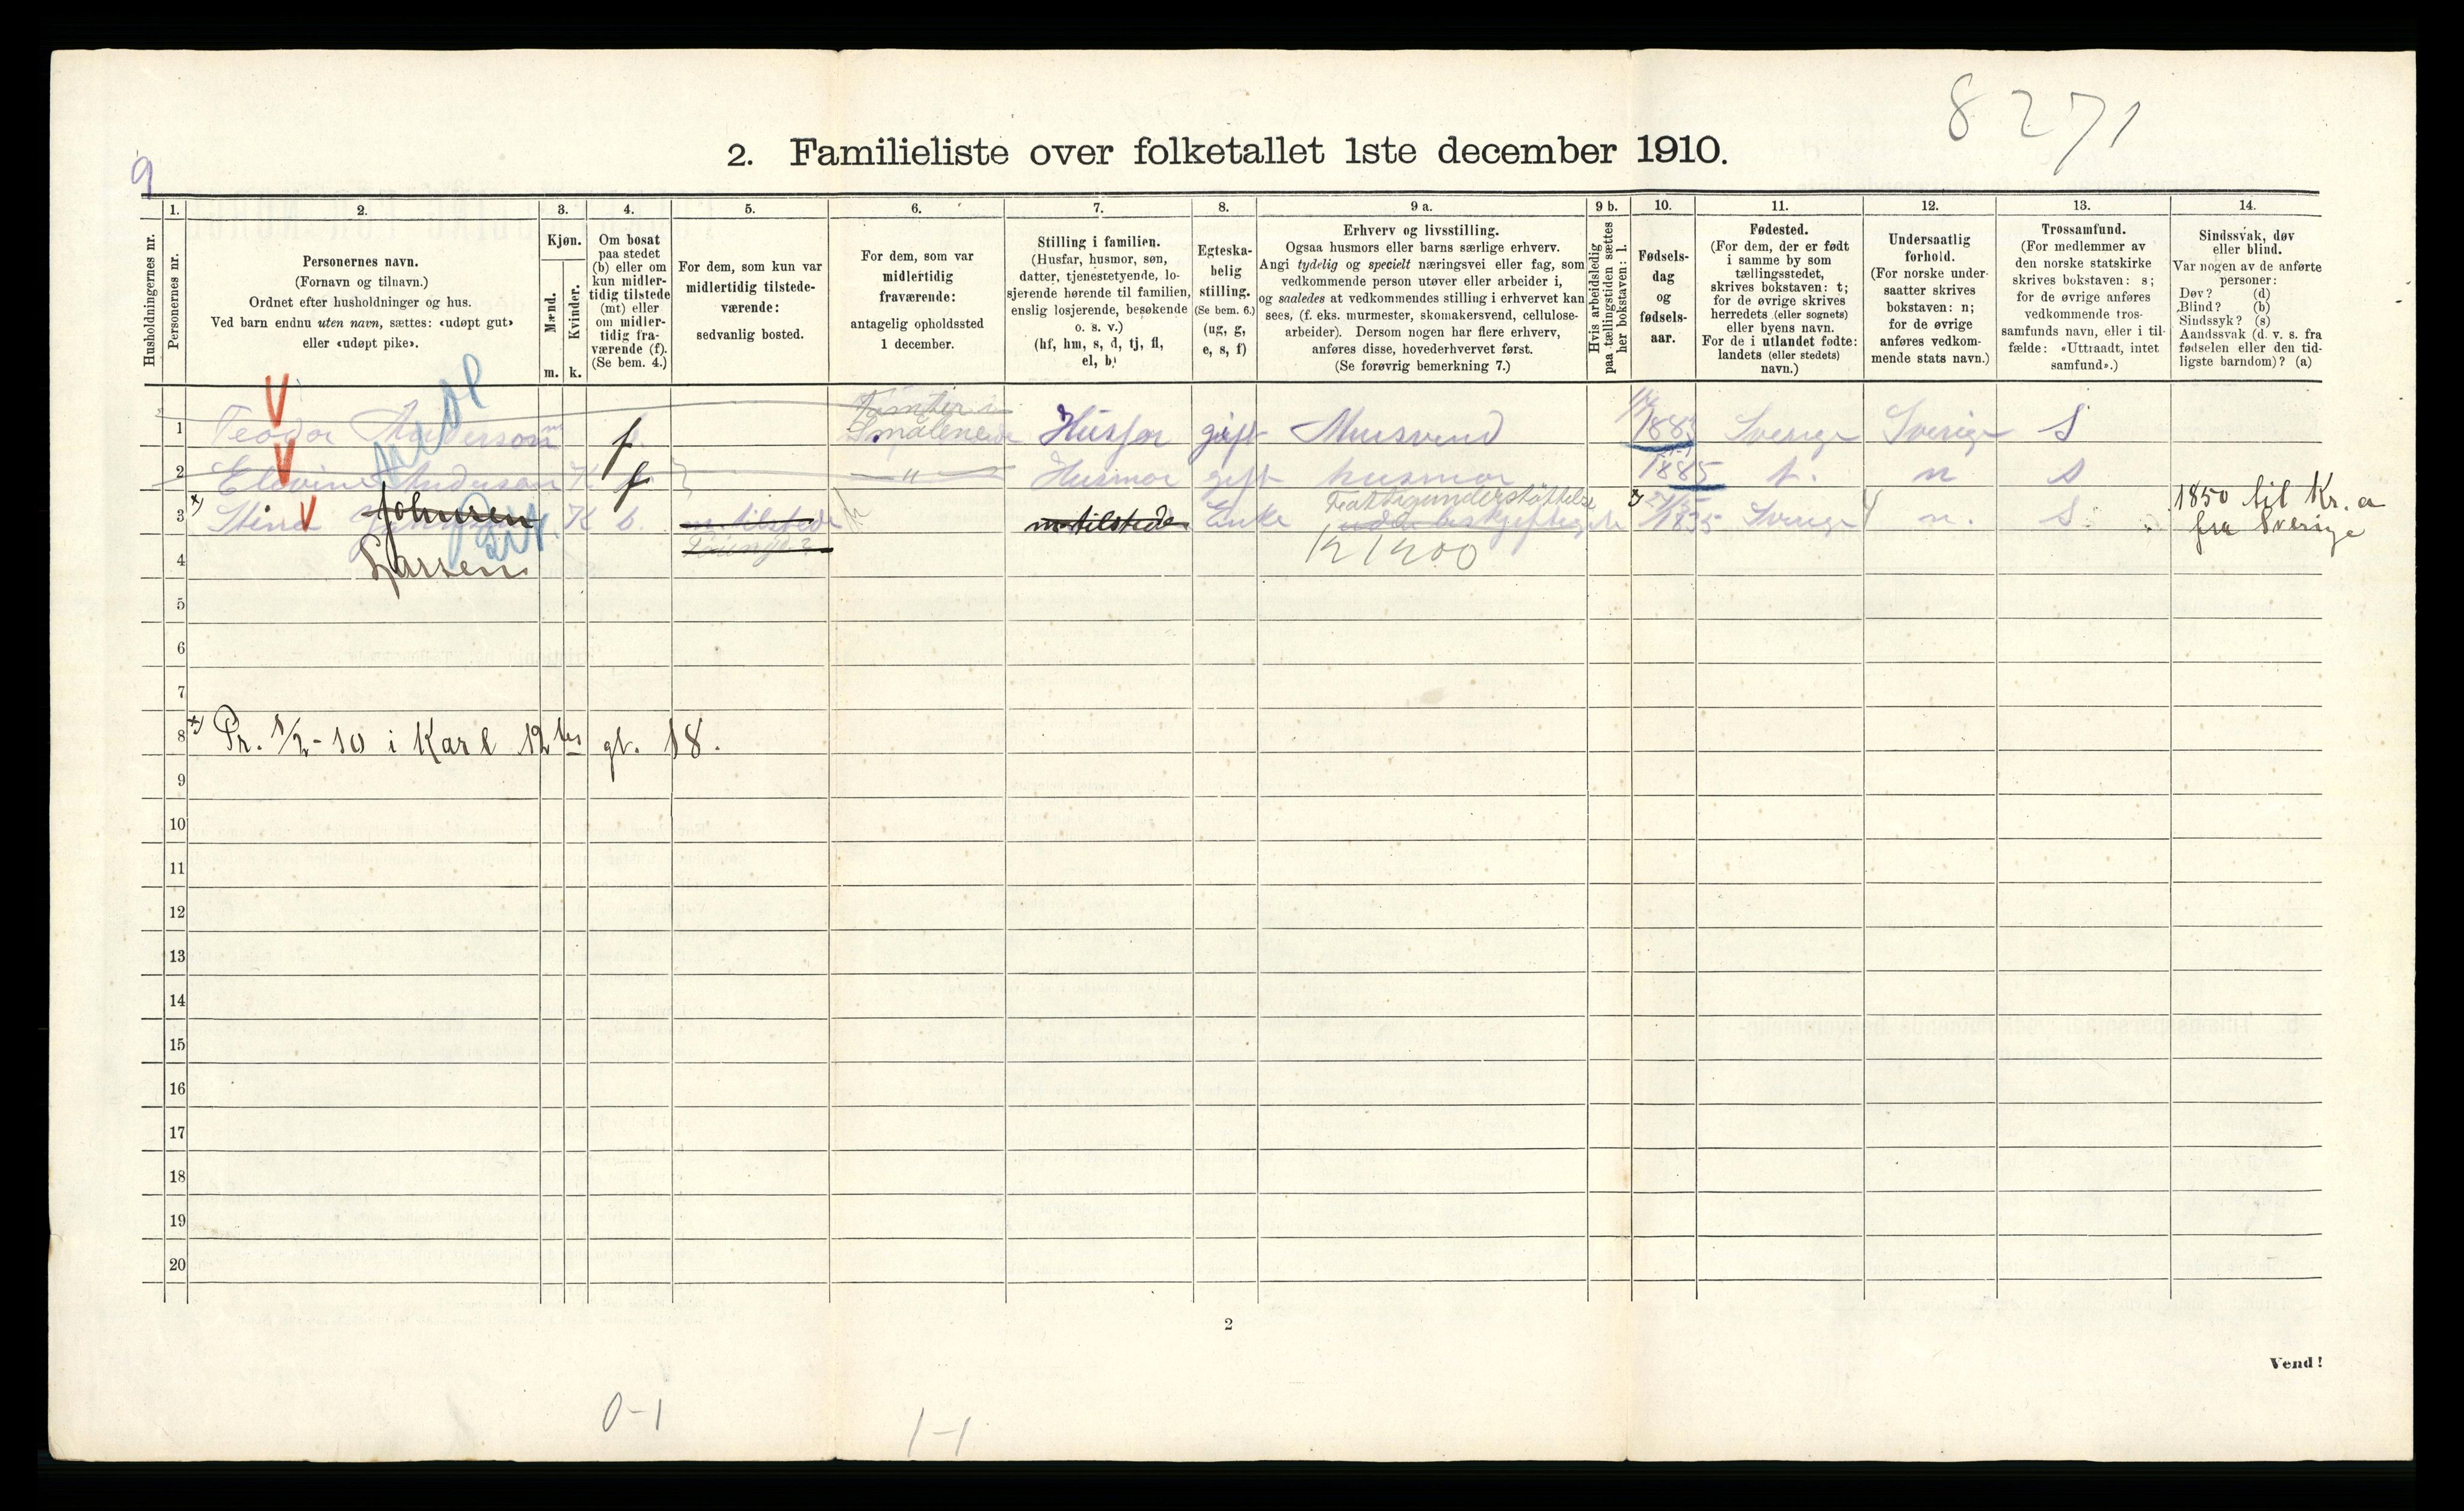 8271
2. Familieliste over folketallet 1ste december 1910.
9
1. 2. 3. 4. 5. 6. 7. 8. 9 a. 9 b. 10. 11. 12. 13. 14.
Husholdningernes nr.
Personernes nr.
Personernes navn.
(Fornavn og tilnavn.)
Ordnet efter husholdninger og hus.
Ved barn endnu uten navn, sættes: «udøpt gut»
eller «udøpt pike».
Kjøn.
Mænd.
Kvinder.
m. k.
Om bosat
paa stedet
(b) eller om
kun midler-
tidig tilstede
(mt) eller
om midler-
tidig fra-
værende (f).
(Se bem. 4.)
For dem, som kun var
midlertidig tilstede-
værende:
sedvanlig bosted.
For dem, som var
midlertidig
fraværende:
antagelig opholdssted
1 december.
Stilling i familien.
(Husfar, husmor, søn,
datter, tjenestetyende, lo-
sjerende hørende til familien,
enslig losjerende, besøkende
o. s. v.)
(hf, hm, s, d, tj, fl,
el, b)
Egteska-
belig
stilling.
(Se bem. 6.)
(ug, g,
e, s, f)
Erhverv og livsstilling.
Ogsaa husmors eller barns særlige erhverv.
Angi tydelig og specielt næringsvei eller fag, som
vedkommende person utøver eller arbeider i,
og saaledes at vedkommendes stilling i erhvervet kan
sees, (f. eks. murmester, skomakersvend, cellulose-
arbeider). Dersom nogen har flere erhverv,
anføres disse, hovederhvervet først.
(Se forøvrig bemerkning 7.)
Hvis arbeidsledig
paa tællingstiden sættes
her bokstaven: l.
Fødsels-
dag
og
fødsels-
aar.
Fødested.
(For dem, der er født
i samme by som
tællingsstedet,
skrives bokstaven: t;
for de øvrige skrives
herredets (eller sognets)
eller byens navn.
For de i utlandet fødte:
landets (eller stedets)
navn.)
Undersaatlig
forhold.
(For norske under-
saatter skrives
bokstaven: n;
for de øvrige
anføres vedkom-
mende stats navn.)
Trossamfund.
(For medlemmer av
den norske statskirke
skrives bokstaven: s;
for de øvrige anføres
vedkommende tros-
samfunds navn, eller i til-
fælde: «Uttraadt, intet
samfund».)
Sindssvak, døv
eller blind.
Var nogen av de anførte
personer:
Døv? (d)
Blind? (b)
Sindssyk? (s)
Aandssvak (d. v. s. fra
fødselen eller den tid-
ligste barndom)? (a)
1 Teodor Anderson m f Smaalenene Husfar gift Mursvend 1883 Sverige Sverige S
2 Elovine Anderson K f " Husmor gift husmor 1885 t. n s
3 x) Stina Johnsen K b. m tilstede m tilstede Enke Fattigunderstøttelse 1835 Sverige n. S. 1850 til Kr. a
fra Sverige
4 Larsen 121200
5
6
7
8 x) Fr. 1/2-10 i Karl 12tes gt. 18.
9
10
11
12
13
14
15
16
17
18
19
20
2
Vend!
0-1
1-1